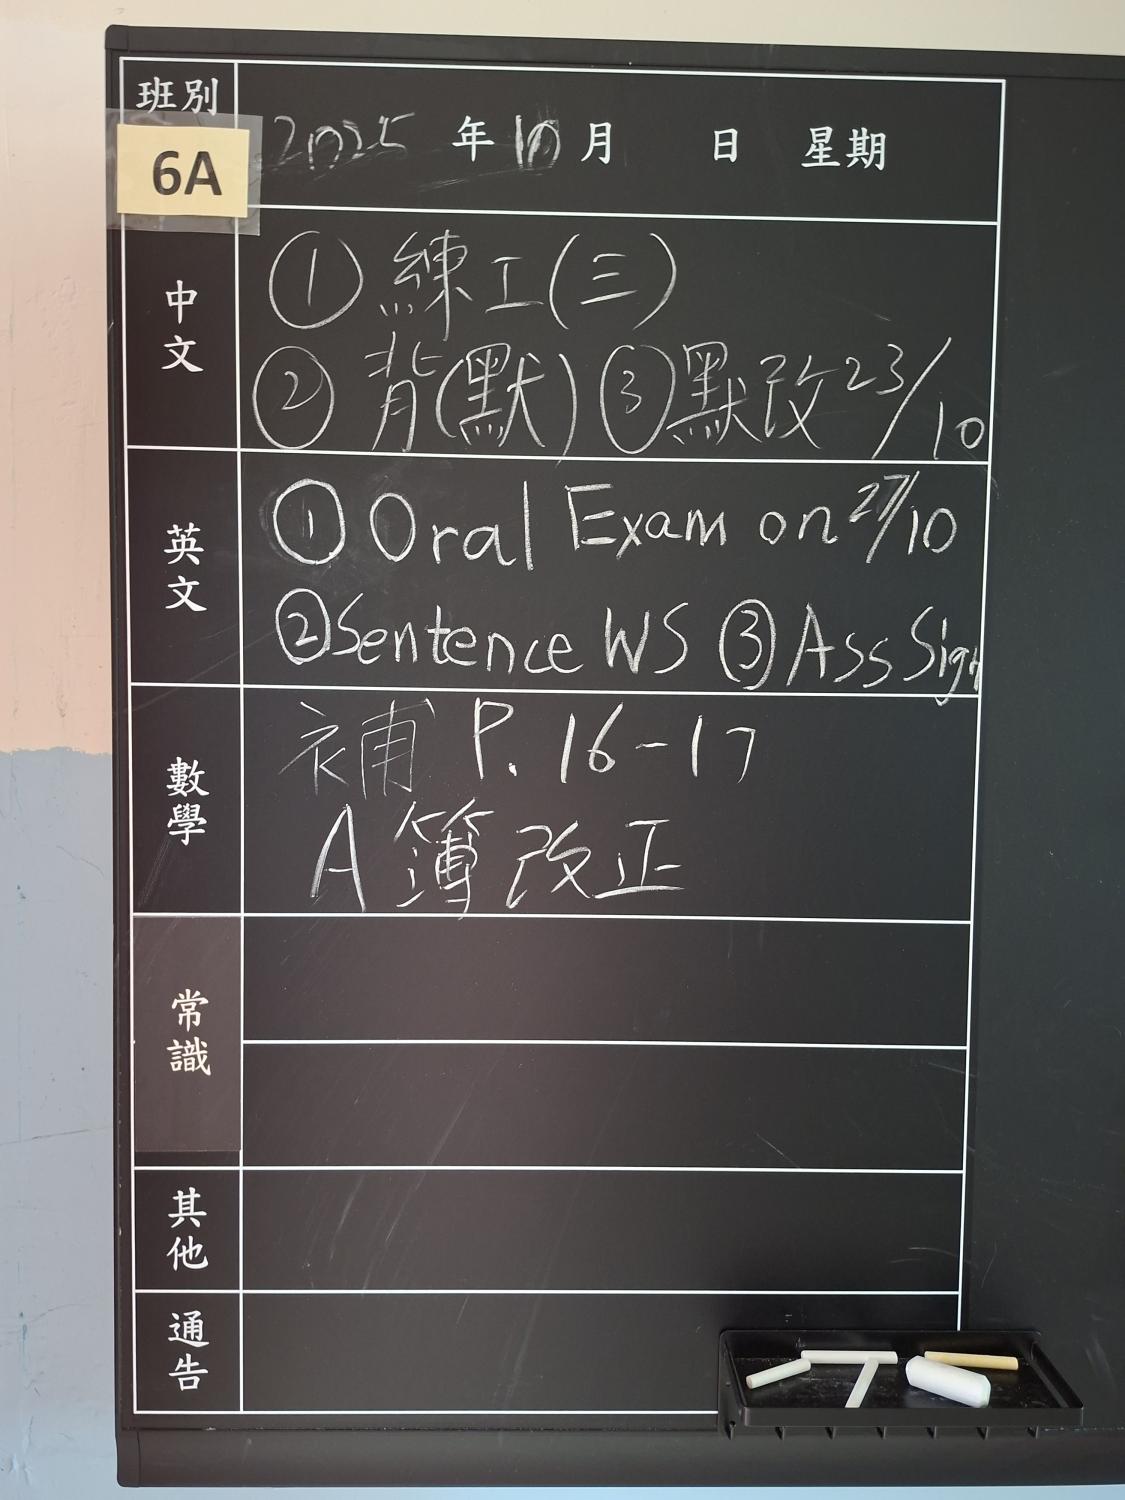 班別
6A
2025 年 10 月 日 星期
中文
① 練工(三)
② 背(默) ③ 默改 23/10
英文
① Oral Exam on 27/10
② Sentence WS ③ Ass Sign
數學
補 P. 16-17
A 簿 改正
常識
其他
通告